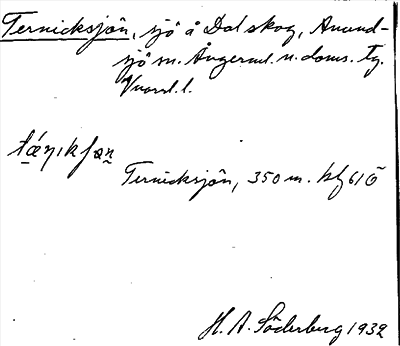 Ternicksjön, sjö å Dal skog, Anund-
sjö sn. Ångerml. n. doms. tg.
Vnorrl. l.
Ternicksjön, 350 m. hbf 61 Ö
H. A. Söderberg 1932